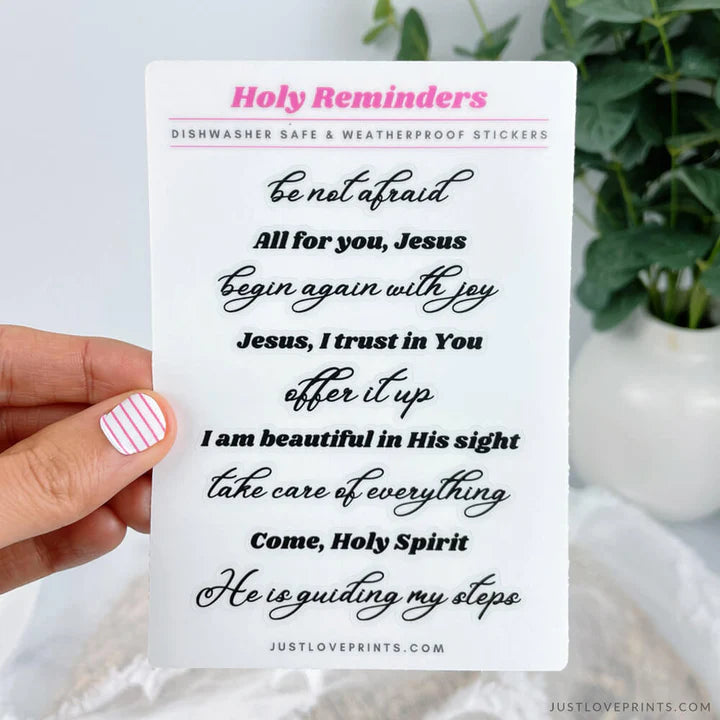 Holy Reminders
DISHWASHER SAFE & WEATHERPROOF STICKERS
be not afraid
All for you, Jesus
begin again with joy
Jesus, I trust in You
offer it up
I am beautiful in His sight
take care of everything
Come, Holy Spirit
He is guiding my steps
JUSTLOVEPRINTS.COM
JUSTLOVEPRINTS.COM